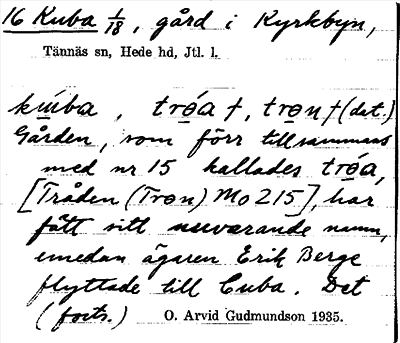 16 Kuba 1/18, gård i Kyrkbyn,
Tännäs sn, Hede hd, Jtl. l.
kuba, tróa †, tron † (dat.)
Gården, som förr tillsammans
med nr 15 kallades tróa,
[Tråden (Tron) Mo 215], har
fått sitt nuvarande namn,
emedan ägaren Erik Berge
flyttade till Cuba. Det
(forts.) O. Arvid Gudmundson 1935.